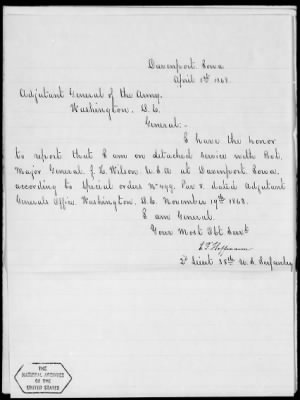 Davenport. Iowa
April 1st 1868.
Adjutant General of the Army.
Washington. D.C.
General:-
I have the honor
to report that I am on detached service with Bvt.
Major General. J. H. Wilson. U.S.A at Davenport. Iowa.
according to Special orders No 499. Par 8. dated Adjutant
Generals Office. Washington. D.C. November 19th 1868.
I am General.
Your Most Obt Servt
Hoffmann
2d Lieut 38th U.S. Infantry
THE
NATIONAL ARCHIVES
OF THE
UNITED STATES